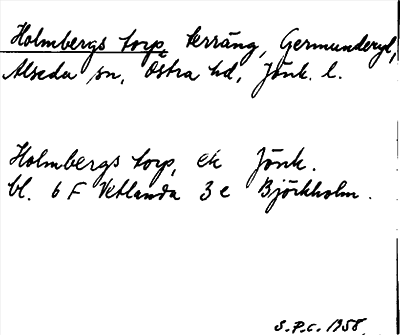 Holmbergs torp, terräng, Germunderyd,
Alseda sn, Östra hd, Jönk. l.
Holmbergs torp, ek Jönk.
bl. 6 F Vetlanda 3 e Björkholm.
S.P.C. 1958.